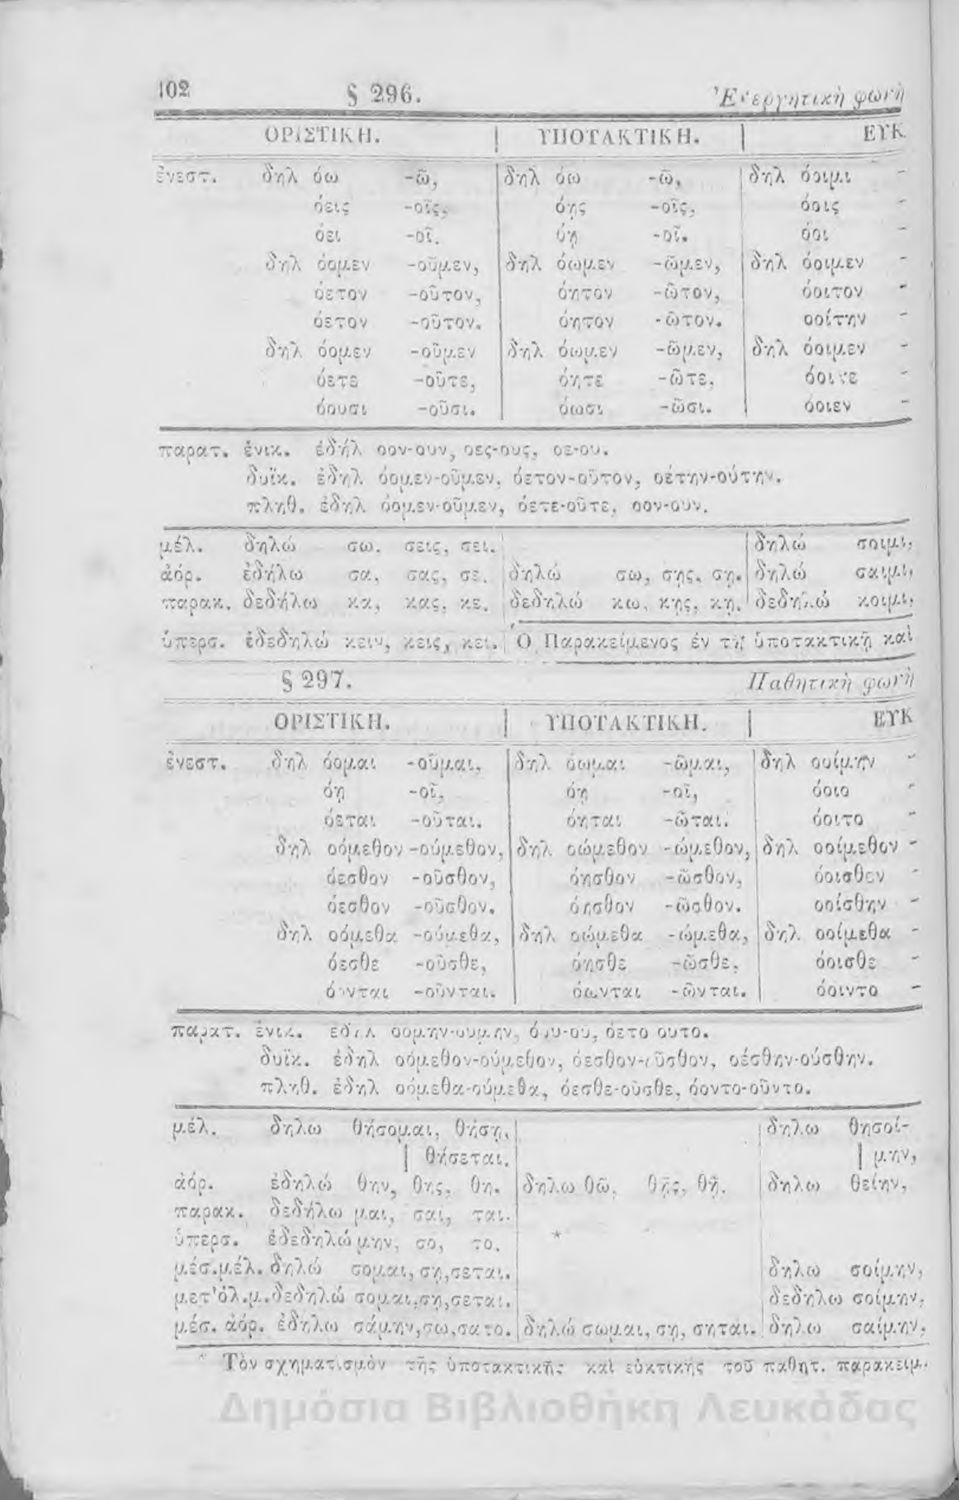 102 § 296. Ἐνεργητικὴ φωνὴ
ΟΡΙΣΤΙΚΗ. | ΥΠΟΤΑΚΤΙΚΗ. | ΕΥΚ
ἐνεστ. δηλ όω -ῶ, δηλ όω -ῶ, δηλ όοιμι -
όεις -οῖς, όῃς -οῖς, όοις -
όει -οῖ. όῃ -οῖ. όοι -
δηλ όομεν -οῦμεν, δηλ όωμεν -ῶμεν, δηλ όοιμεν -
όετον -οῦτον, όητον -ῶτον, όοιτον -
όετον -οῦτον. όητον -ῶτον. οοίτην -
δηλ όομεν -οῦμεν δηλ όωμεν -ῶμεν, δηλ όοιμεν -
όετε -οῦτε, όητε -ῶτε, όοιτε -
όουσι -οῦσι. όωσι -ῶσι. όοιεν -
παρατ. ἑνικ. ἐδήλ οον-ουν, οες-ους, οε-ου.
δυϊκ. ἐδηλ όομεν-οῦμεν, όετον-οῦτον, οέτην-ούτην.
πληθ. ἐδηλ όομεν-οῦμεν, όετε-οῦτε, οον-ουν.
μέλ. δηλώ σω, σεις, σει. δηλώ σοιμι,
ἀόρ. ἐδήλω σα, σας, σε. δηλώ σω, σῃς, σῃ. δηλώ σαιμι,
παρακ. δεδήλω κα, κας, κε. δεδηλώ κω, κῃς, κῃ. δεδηλώ κοιμι,
ὑπερσ. ἐδεδηλώ κειν, κεις, κει. Ὁ Παρακείμενος ἐν τῇ ὑποτακτικῇ καὶ
§ 297. Παθητικὴ φωνὴ
ΟΡΙΣΤΙΚΗ. | ΥΠΟΤΑΚΤΙΚΗ. | ΕΥΚ
ἐνεστ. δηλ όομαι -οῦμαι, δηλ όωμαι -ῶμαι, δηλ οοίμην -
όῃ -οῖ, όῃ -οῖ, όοιο -
όεται -οῦται. όηται -ῶται. όοιτο -
δηλ οόμεθον -ούμεθον, δηλ οώμεθον -ώμεθον, δηλ οοίμεθον -
όεσθον -οῦσθον, όησθον -ῶσθον, όοισθον -
όεσθον -οῦσθον. όησθον -ῶσθον. οοίσθην -
δηλ οόμεθα -ούμεθα, δηλ οώμεθα -ώμεθα, δηλ οοίμεθα -
όεσθε -οῦσθε, όησθε -ῶσθε, όοισθε -
όονται -οῦνται. όωνται -ῶνται. όοιντο -
παρατ. ἑνικ. ἐδηλ οόμην-ούμην, όου-οῦ, όετο οῦτο.
δυϊκ. ἐδηλ οόμεθον-ούμεθον, όεσθον-οῦσθον, οέσθην-ούσθην.
πληθ. ἐδηλ οόμεθα-ούμεθα, όεσθε-οῦσθε, όοντο-οῦντο.
μέλ. δηλω θήσομαι, θήσῃ, δηλω θησοί-
| θήσεται. | μην,
ἀόρ. ἐδηλώ θην, θης, θη. δηλω θῶ, θῇς, θῇ. δηλω θείην,
παρακ. δεδήλω μαι, σαι, ται.
ὑπερσ. ἐδεδηλώ μην, σο, το. *
μέσ.μέλ. δηλώ σομαι, σῃ, σεται. δηλω σοίμην,
μετ'ὀλ.μ. δεδηλώ σομαι, σῃ, σεται. δεδηλω σοίμην,
μέσ. ἀόρ. ἐδηλω σάμην, σω, σατο. δηλώ σωμαι, σῃ, σηται. δηλω σαίμην,
* Τὸν σχηματισμὸν τῆς ὑποτακτικῆς καὶ εὐκτικῆς τοῦ παθητ. παρακειμ.
Δημόσια Βιβλιοθήκη Λευκάδας